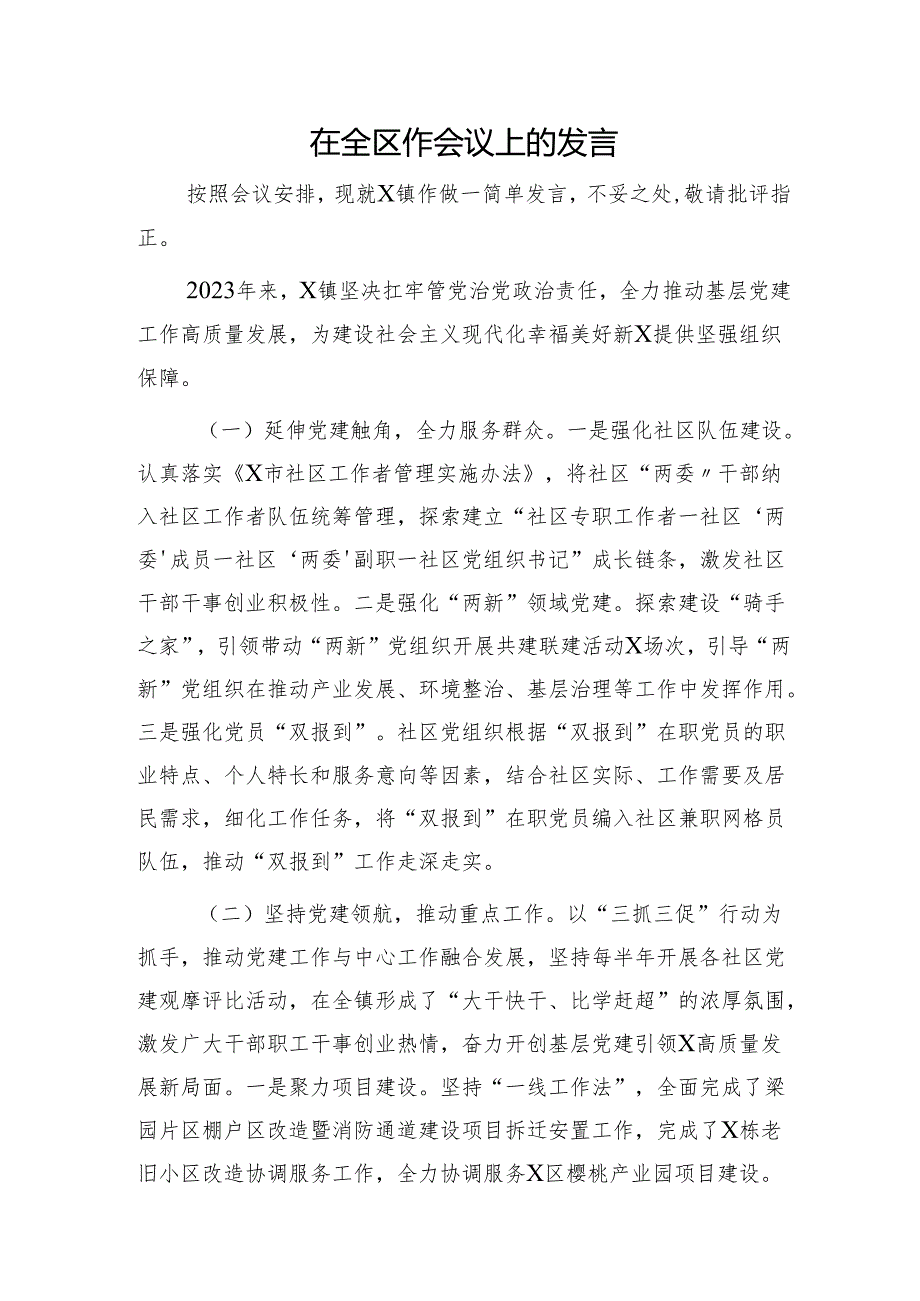 在全区作会议上的发言
按照会议安排，现就X镇作做一简单发言，不妥之处,敬请批评指
正。
2023年来，X镇坚决扛牢管党治党政治责任，全力推动基层党建
工作高质量发展，为建设社会主义现代化幸福美好新X提供坚强组织
保障。
（一）延伸党建触角，全力服务群众。一是强化社区队伍建设。
认真落实《X市社区工作者管理实施办法》，将社区“两委〃干部纳
入社区工作者队伍统筹管理，探索建立“社区专职工作者一社区‘两
委'成员一社区‘两委'副职一社区党组织书记”成长链条，激发社区
干部干事创业积极性。二是强化“两新”领域党建。探索建设“骑手
之家”，引领带动“两新”党组织开展共建联建活动X场次，引导“两
新”党组织在推动产业发展、环境整治、基层治理等工作中发挥作用。
三是强化党员“双报到”。社区党组织根据“双报到”在职党员的职
业特点、个人特长和服务意向等因素，结合社区实际、工作需要及居
民需求，细化工作任务，将“双报到”在职党员编入社区兼职网格员
队伍，推动“双报到”工作走深走实。
（二）坚持党建领航，推动重点工作。以“三抓三促”行动为
抓手，推动党建工作与中心工作融合发展，坚持每半年开展各社区党
建观摩评比活动，在全镇形成了“大干快干、比学赶超”的浓厚氛围，
激发广大干部职工干事创业热情，奋力开创基层党建引领X高质量发
展新局面。一是聚力项目建设。坚持“一线工作法”，全面完成了梁
园片区棚户区改造暨消防通道建设项目拆迁安置工作，完成了X栋老
旧小区改造协调服务工作，全力协调服务X区樱桃产业园项目建设。